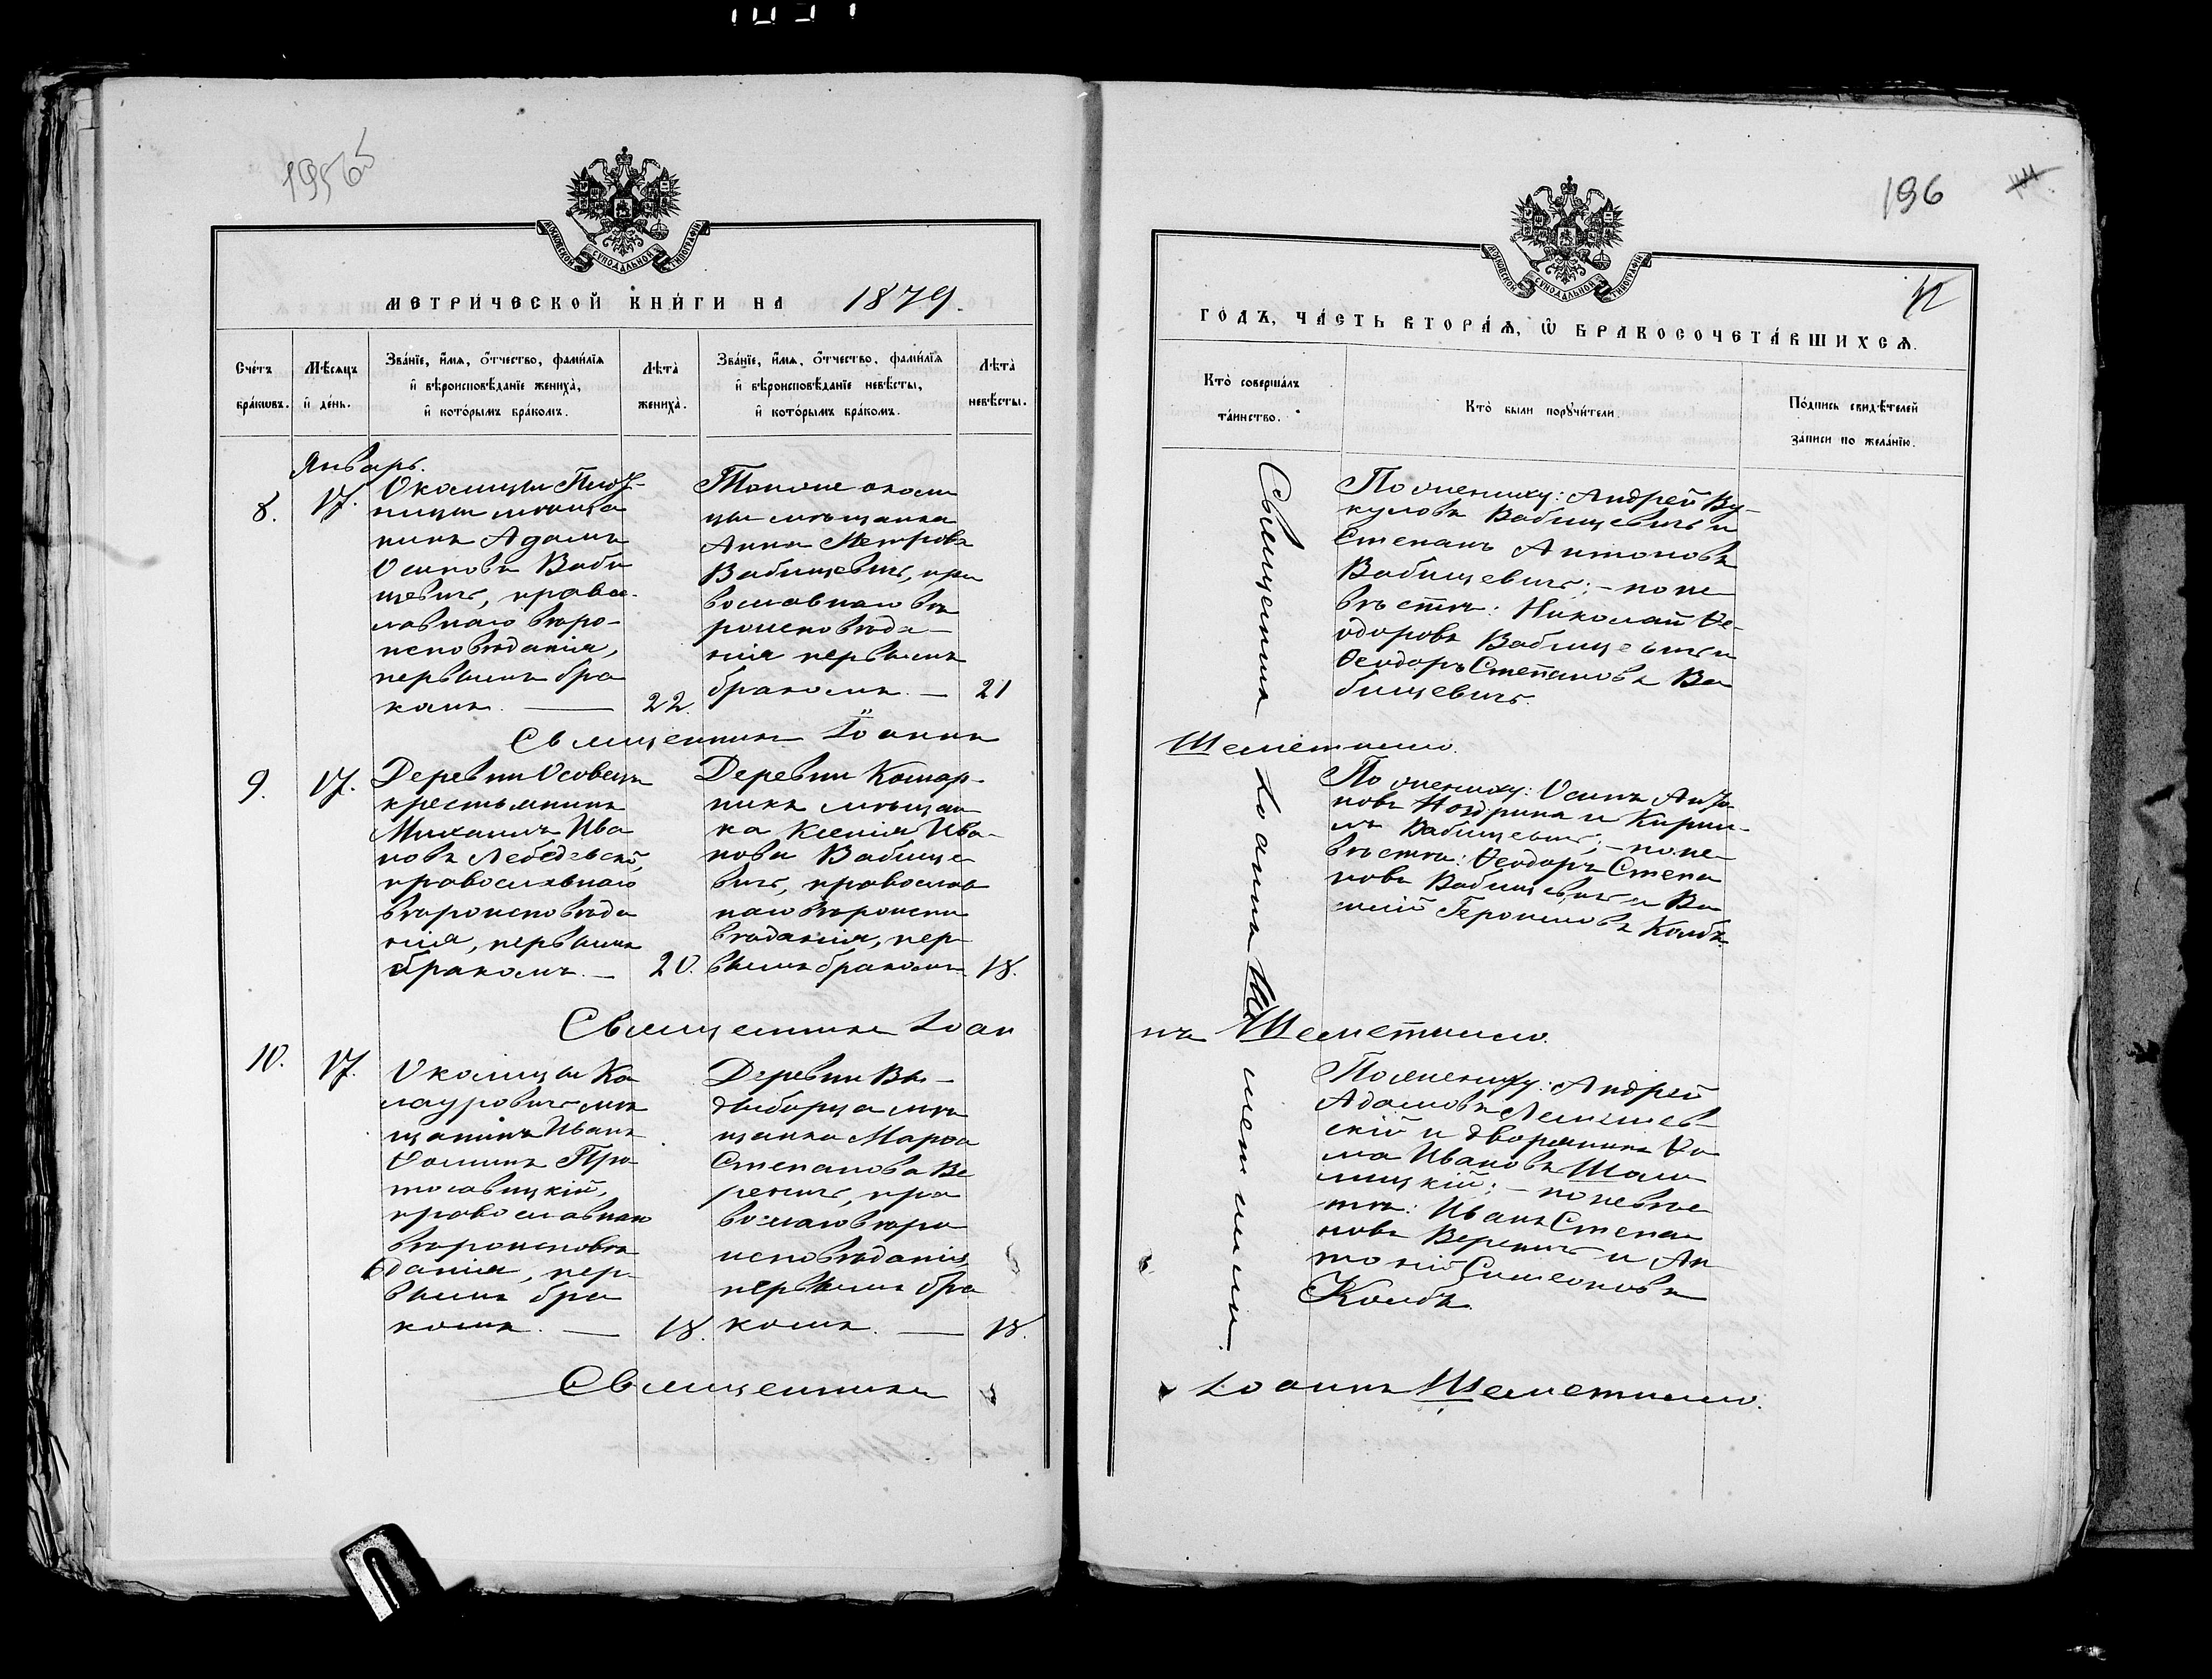 195об
МОСКОВСКОЙ СѴНОДАЛЬНОЙ ТИПОГРАФІИ
МЕТРИ́ЧЕСКОЙ КНИ́ГИ НА 1879.
Сче́тъ бра́кѡвъ.
Мѣ́сяцъ и҆ де́нь.
Зва́нїе, и҆́мя, ѻ҆́тчество, фами́лїя
и҆ вѣроисповѣ́данїе жениха̀,
и҆ кото́рымъ бра́комъ.
Лѣ́та̀ жениха̀.
Зва́нїе, и҆́мя, ѻ҆́тчество, фами́лїя
и҆ вѣроисповѣ́данїе невѣ́сты,
и҆ кото́рымъ бра́комъ.
Лѣ́та̀ невѣ́сты.
Январь.
8.
17.
Околицы
мѣща
нинъ Адамъ
Осиповъ Баби
щевичъ, правос
лавнаго вѣро-
исповѣданія,
первымъ бра
комъ. —
22.
Тойже околи
цы мѣщанка
Анна Петрова
Бабищевичъ, пра
вославнаго вѣ
роисповѣда-
нія первымъ
бракомъ. —
21
Священникъ Іоаннъ
9.
17.
Деревни Осовецъ
крестьянинъ
Михаилъ Ива
новъ Лебедевскій,
православнаго
вѣроисповѣда
нія, первымъ
бракомъ. —
20.
Деревни Комар-
никъ мѣщан
ка Ксенія Ива-
нова Бабище
вичъ, православ
наго вѣроиспо
вѣданія, пер
вымъ бракомъ.
18.
Священникъ Іоан
10.
17.
Околицы Ко
лауровичъ мѣ
щанинъ Иванъ
Ѳоминъ Про
тасавицкій,
православнаго
вѣроисповѣ
данія, пер-
вымъ бра
комъ. —
18.
Деревни Вы-
мѣ
щанка Марѳа
Степанова Ве
реничъ, пра
вослаго вѣро
исповѣданія,
первымъ бра
комъ. —
18.
Священникъ
196
МОСКОВСКОЙ СѴНОДАЛЬНОЙ ТИПОГРАФІИ
ГО́ДЪ, ЧА́СТЬ ВТОРА́Ѧ, Ѽ БРАКОСОЧЕТА́ВШИХСѦ.
Кто̀ соверша́лъ
та́инство.
Кто̀ были пору́чители.
По́дпись свидѣ́телей
за́писи по жела́нїю.
Священникъ Іоаннъ Шеметилло.
По жениху: Андрей Ву-
куловъ Бабищевичъ и
Степанъ Антоновъ
Бабищевичъ; — по не
вѣстѣ: Николай Ѳе-
одоровъ Бабищевичъ и
Ѳеодоръ Степановъ Ба
бищевичъ.
Шеметилло.
По жениху: Осипъ
новъ Ноздринъ и Кирил-
лъ Бабищевичъ; — по не
вѣстѣ: Ѳеодоръ Степа
новъ Бабищевичъ и Ва
силій Герасимовъ Колбъ.
нъ Шеметилло.
По жениху: Андрей
Адамовъ
скій и дворянинъ Ѳо
ма Ивановъ
мицкій; — по невѣс
тѣ: Иванъ Степа
новъ Вереничъ и Ан
тоній Симеоновъ
Колбъ.
Іоаннъ Шеметилло.